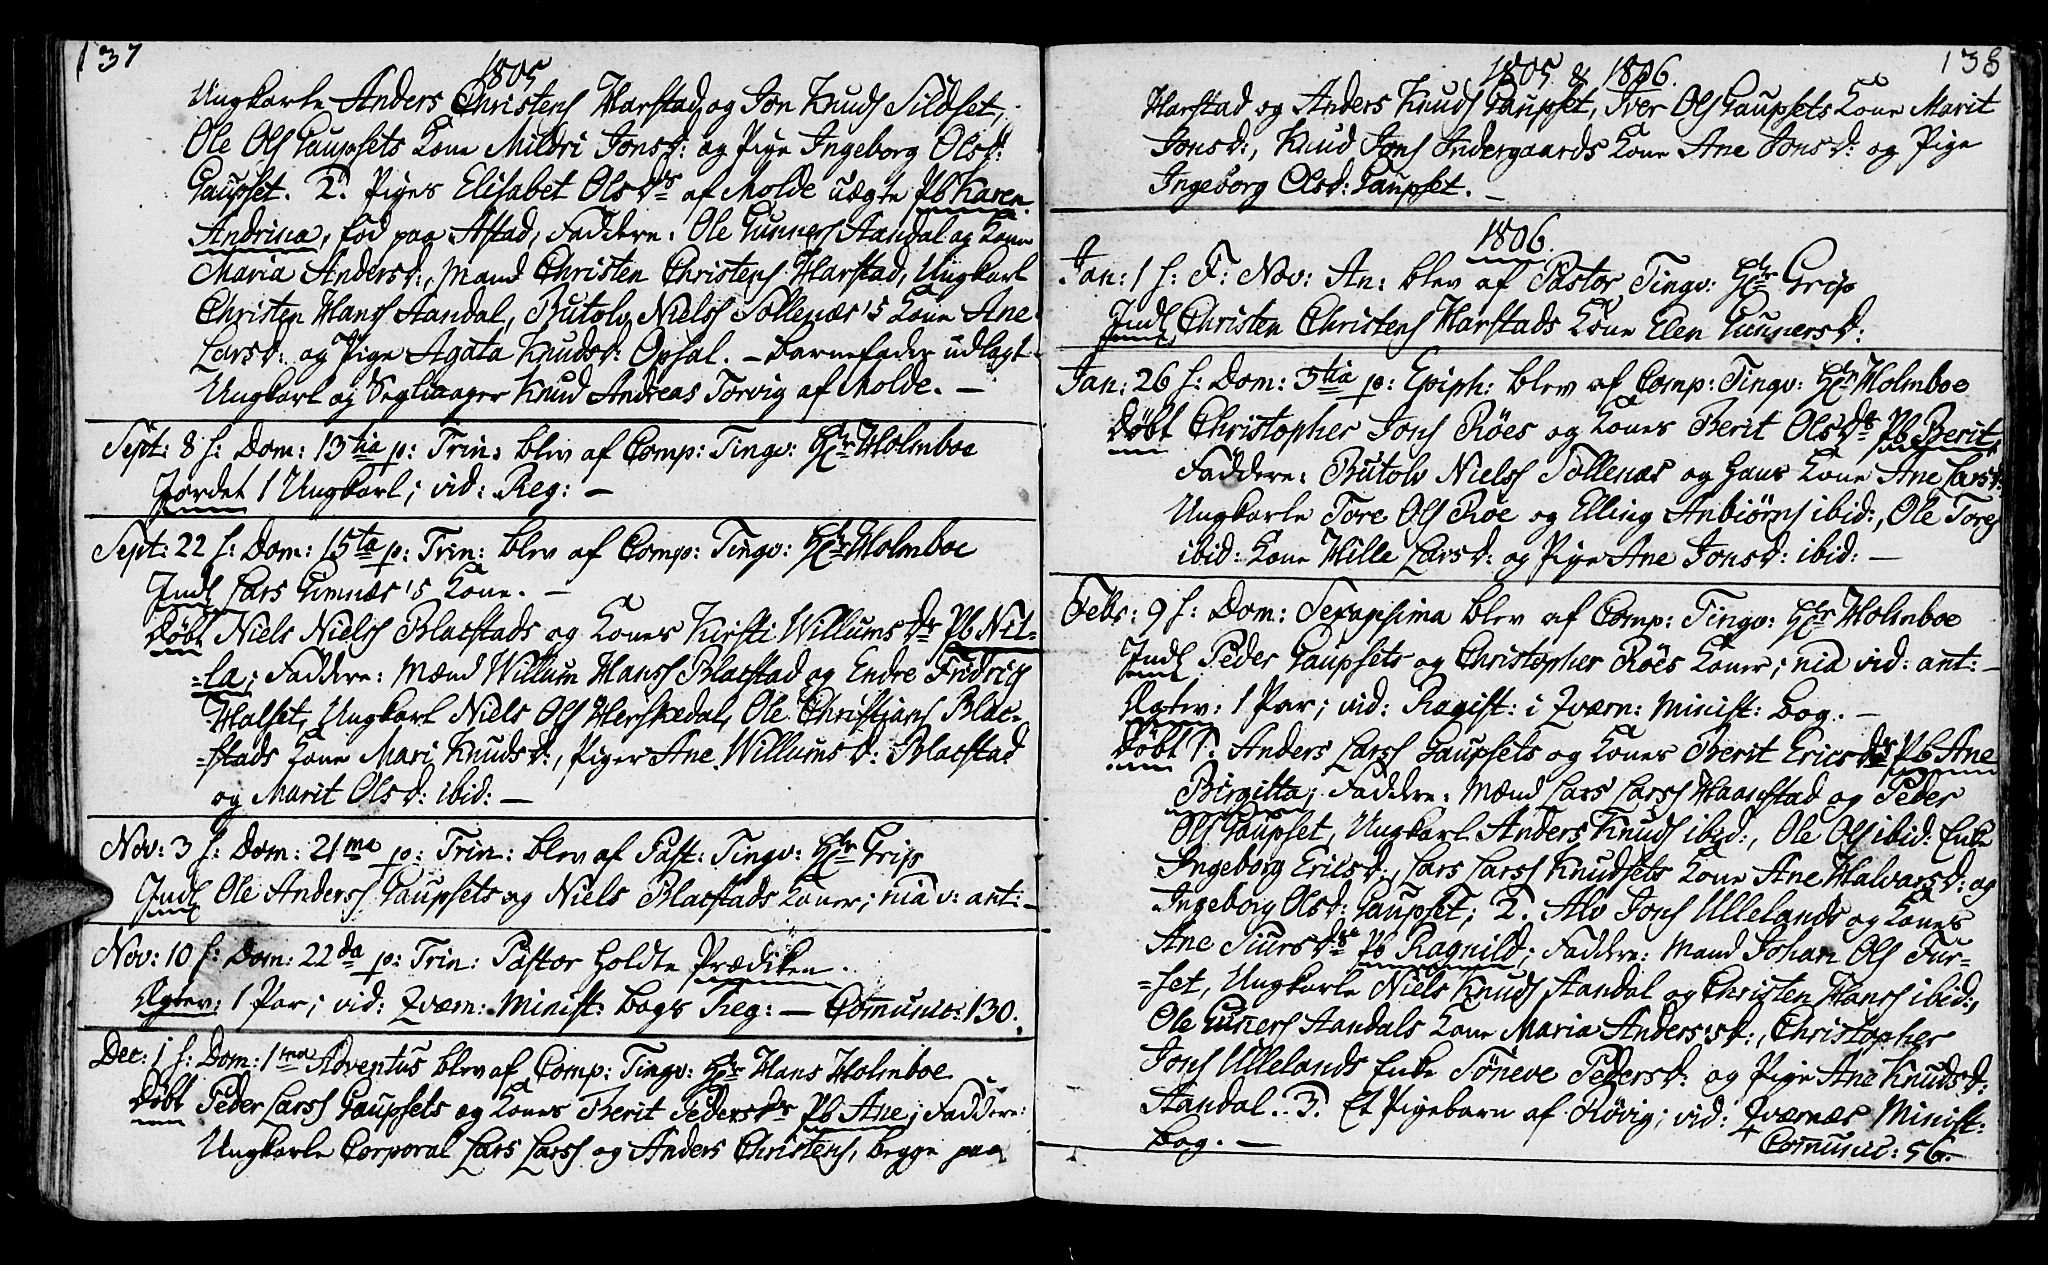 137
1805
Ungkarle Anders Christens Harstad og Jon Knuds Sildset,
Ole Ols Gaupsets Kone Mildri Jonsd: og Pige Ingeborg Olsd:
Gaupset. 2. Piges Elisabet Olsdr af Molde uægte Pb Karen
Andrina, fød paa Astad, Faddere: Ole Gunners Aandal og Kone
Maria Andersd:, Mand Christen Christens Harstad, Ungkarl
Christen Hans Aandal, Butolv Niels Tollenæs's Kone Ane
Larsd: og Pige Agata Knudsd: Opsal. - Barnefader udlagt
Ungkarl og Seglmager Knud Andreas Torvig af Molde. -
Sept: 8 h: Dom: 13tia p: Trin: blev af Comp: Tingv: Hr Holmboe
Jordet 1 Ungkarl; vid: Reg: -
Sept: 22 h: Dom: 15ta p: Trin: blev af Comp: Tingv: Hr Holmboe
Indl Lars Gimnæs's Kone. -
Døbt Niels Niels Blacstads og Kones Kirsti Willumsdr Pb Nil-
=la; Faddere: Mænd Willum Hans Blacstad og Endre Fridrics
Halset, Ungkarl Niels Ols Herskedal, Ole Christians Blac-
=stads Kone Mari Knudsd:, Piger Ane Willumsd: Blacstad
og Marit Olsd: ibid: -
Nov: 3 h: Dom: 21ma p: Trin: blev af Past: Tingv: Hr Grip
Indl Ole Anders Gaupsets og Niels Blacstads Koner; nia v: ant: -
Nov: 10 h: Dom: 22da p: Trin: Pastor holdte Prædiken.
Ægtev: 1 Par; vid: Qværn: Minist: bogs Reg: - Comunic: 130.
Dec: 1 h: Dom: 1ma Adventus blev af Comp: Tingv: Hr Hans Holmboe
Døbt Peder Lars Gaupsets og Kones Berit Pedersdr Pb Ane; Faddere:
Ungkarle Corporal Lars Lars og Anders Christens, begge paa
138
1805 & 1806.
Harstad og Anders Knuds Gaupset, Iver Ols Gaupsets Kone Marit
Jonsd:, Knud Jons Indergaards Kone Ane Jonsd: og Pige
Ingeborg Olsd: Gaupset. -
1806.
Jan: 1 h: F: Nov: An: blev af Pastor Tingv: Hr Grip
Indl Christen Christens Harstads Kone Elen Gunnersd:
Jan: 26 h: Dom: 3tia p: Epiph: blev af Comp: Tingv: Hr Holmboe
Døbt Christopher Jons Röes og Kones Berit Olsdr Pb Berit,
Faddere: Butolv Niels Tollenæs og hans Kone Ane Larsd:
Ungkarle Tore Ols Röe og Elling Anbiørns ibid:, Ole Tores
ibid: Kone Hille Larsd: og Pige Ane Jonsd: ibid: -
Febr: 9 h: Dom: Sexagsima blev af Comp: Tingv: Hr Holmboe
Indl Peder Gaupsets og Christopher Röes Koner; nia vid: ant: -
Ægtev: 1 Par; vid: Regist: i Qværn: Minist: bog. -
Døbt 1. Anders Lars Gaupsets og Kones Berit Ericsdr Pb Ane
Birgitta; Faddere: Mænd Lars Lars Haanstad og Peder
Ols Gaupset, Ungkarl Anders Knuds ibid:, Ole Ols ibid: Enke
Ingeborg Ericsd:, Lars Lars Knudsets Kone Ane Halvarsd: og
Ingeborg Olsd: Gaupset; 2. Alv Jons Ullelands og Kones
Ane Siursdr Pb Ragnild; Faddere: Mand Johan Ols Fur-
=set, Ungkarle Niels Knuds Aandal og Christen Hans ibid:,
Ole Gunners Aandals Kone Maria Andersd:, Christopher
Jons Ullelands Enke Töneve Pedersd: og Pige Ane Knudsd:
Aandal. 3. Et Pigebarn af Rövig; vid: Qværnæs Minist:
bog. - Comunic: 56. -